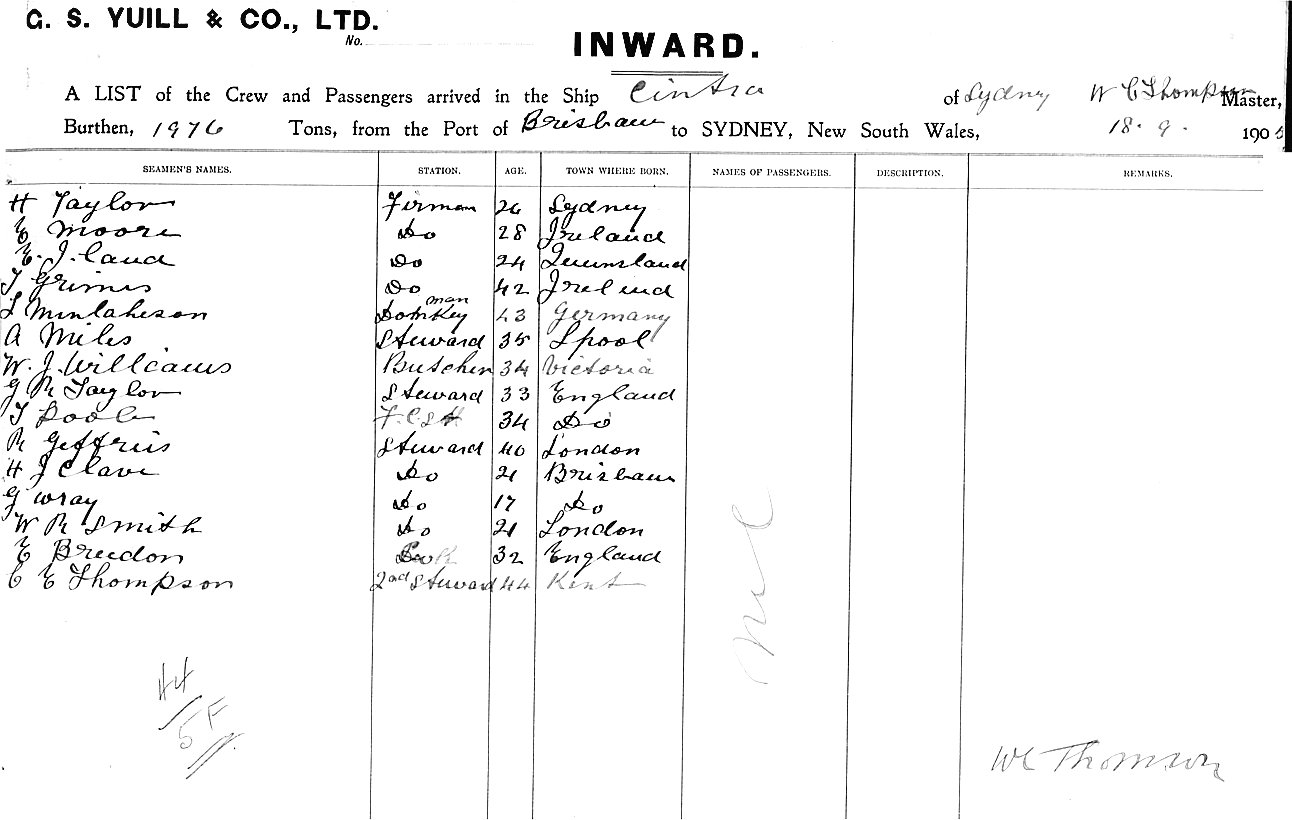 G. S. YUILL & CO., LTD.
No.
INWARD.
A LIST of the Crew and Passengers arrived in the Ship Cintra of Sydney W C Thompson Master,
Burthen, 1976 Tons, from the Port of Brisbane to SYDNEY, New South Wales, 18. 9. 190
SEAMEN'S NAMES. STATION. AGE. TOWN WHERE BORN. NAMES OF PASSENGERS. DESCRIPTION. REMARKS.
H Taylor Firman 26 Sydney
E Moore Do 28 Ireland
E. J. Do 24 Queensland
T Grimes Do 42 Ireland
Donkey man 43 Germany
A Miles Steward 35 Lpool
W. J. Williams Butcher 34 Victoria
G R Taylor Steward 33 England
T Poole 34 Do
R Jeffries Steward 40 London
H J Clave Do 21 Brisbane
G Wray Do 17 Do
W R Smith Do 21 London
E Breedon 32 England
C E Thompson 2nd Steward 44 Kent
Nil
44
5F
WC Thomson